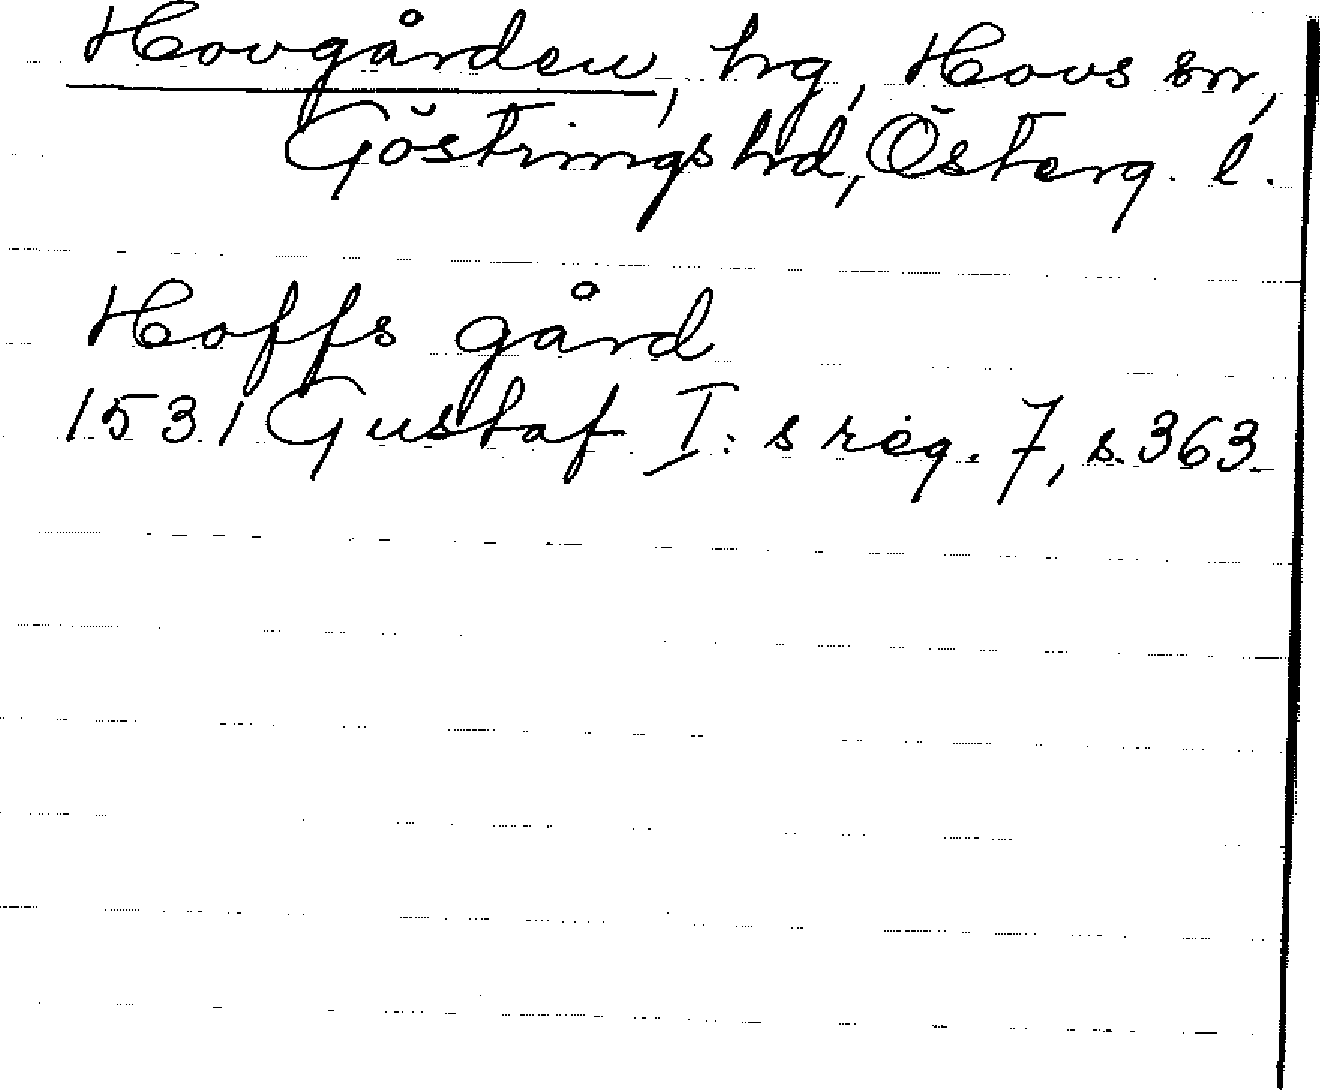 Hovgården, hg, Hovs sn,
Göstrings hd, Österg. l.
Hoffs gård
1531 Gustaf I:s reg. 7, s. 363